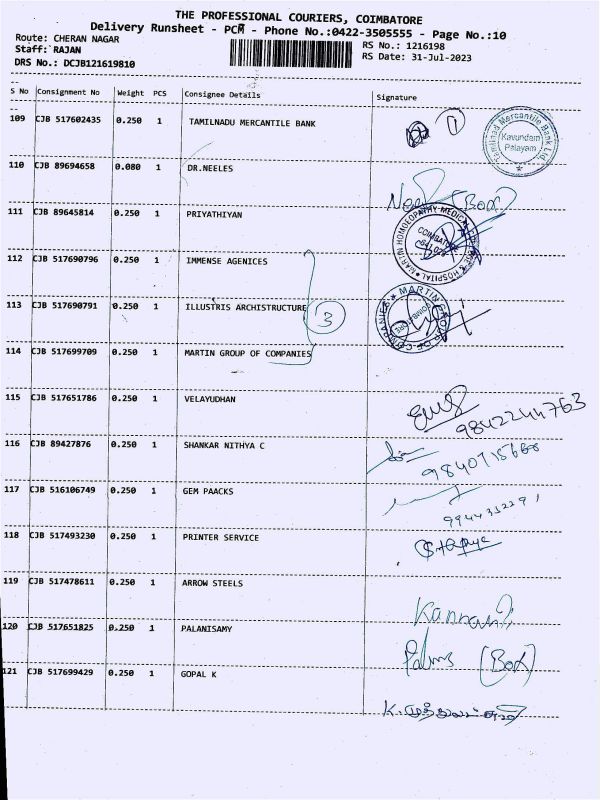 THE PROFESSIONAL COURIERS, COIMBATORE
Delivery Runsheet - PCM - Phone No.:0422-3505555 - Page No.:10
Route: CHERAN NAGAR
RS No.: 1216198
Staff: RAJAN
RS Date: 31-Jul-2023
DRS No.: DCJB121619810
S No Consignment No Weight PCS Consignee Details Signature
109 CJB 517602435 0.250 1 TAMILNADU MERCANTILE BANK
1
Tamilnad Mercantile Bank Ltd
Kavundam
Palayam
110 CJB 89694658 0.080 1 DR.NEELES
(Box)
111 CJB 89645814 0.250 1 PRIYATHIYAN
MARTIN HOMOEOPATHY MEDICAL COLLEGE & HOSPITAL
COIMBATORE
112 CJB 517690796 0.250 1 IMMENSE AGENICES
113 CJB 517690791 0.250 1 ILLUSTRIS ARCHISTRUCTURE
3
MARTIN GROUP OF COMPANIES
COIMBATORE
114 CJB 517699709 0.250 1 MARTIN GROUP OF COMPANIES
115 CJB 517651786 0.250 1 VELAYUDHAN
9842244763
116 CJB 89427876 0.250 1 SHANKAR NITHYA C
117 CJB 516106749 0.250 1 GEM PAACKS
118 CJB 517493230 0.250 1 PRINTER SERVICE
119 CJB 517478611 0.250 1 ARROW STEELS
Kannan
120 CJB 517651825 0.250 1 PALANISAMY
(Box)
121 CJB 517699429 0.250 1 GOPAL K